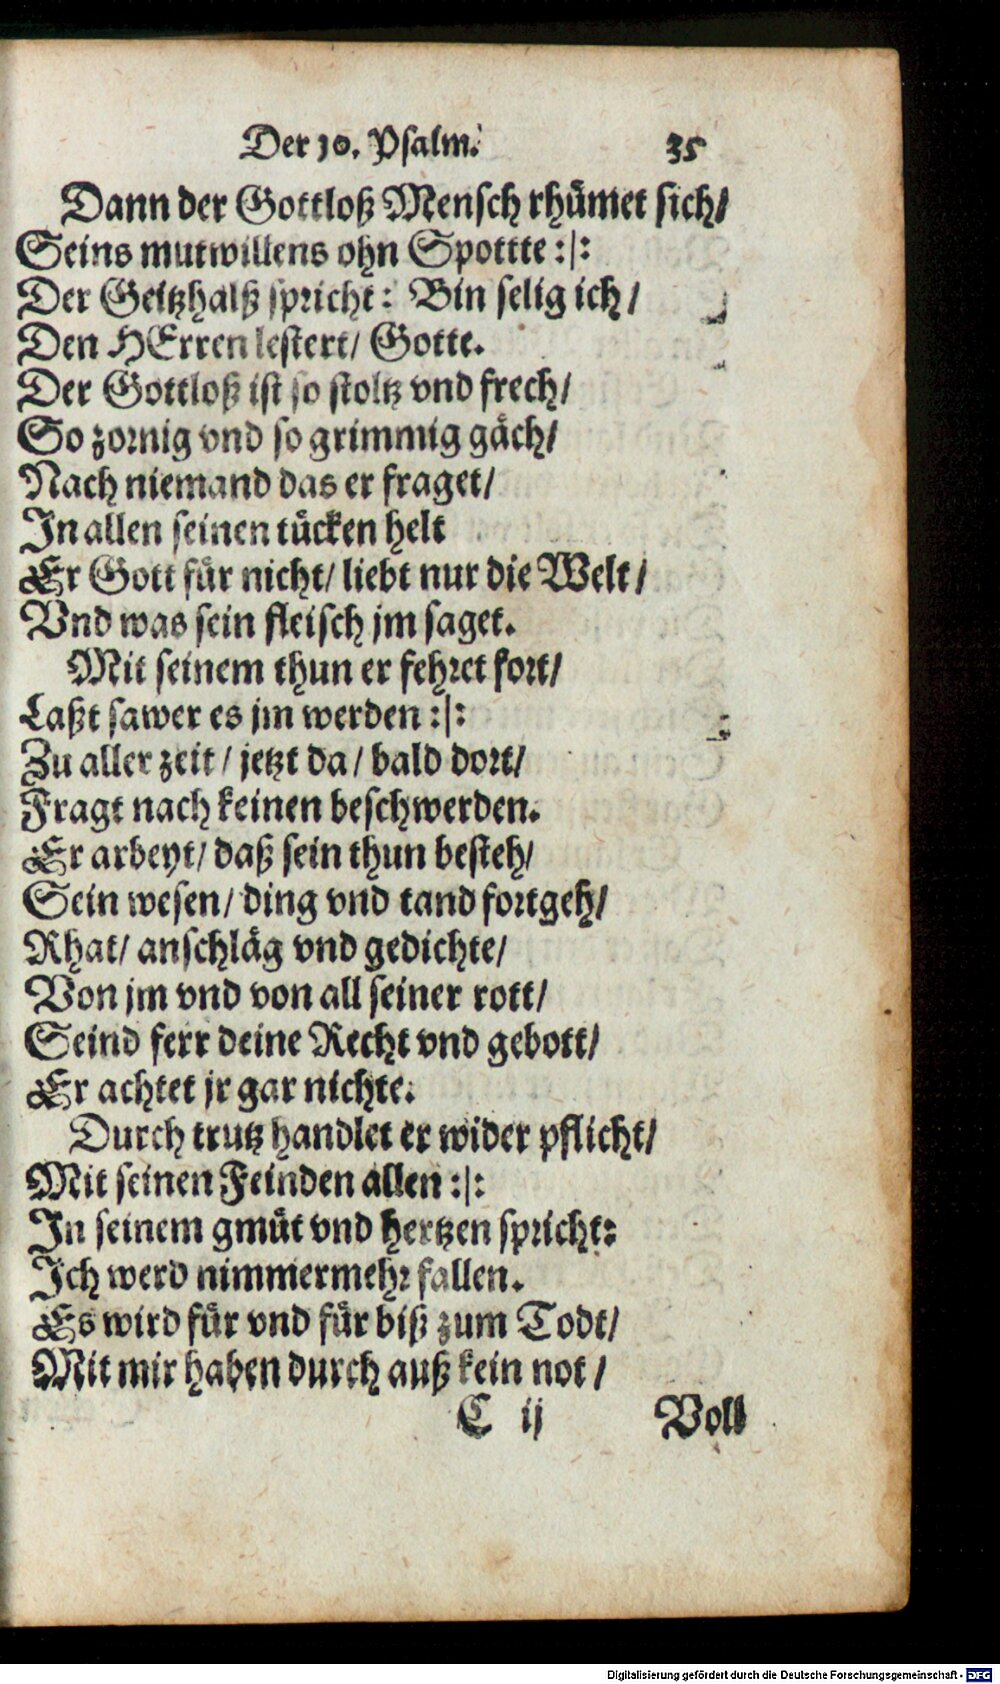 Der 10. Psalm. 35
Dann der Gottloß Mensch rhümet sich/
Seins mutwillens ohn Spottte :|:
Der Geitzhalß spricht: Bin selig ich/
Den HErren lestert/ Gotte.
Der Gottloß ist so stoltz vnd frech/
So zornig vnd so grimmig gäch/
Nach niemand das er fraget/
In allen seinen tücken helt
Er Gott für nicht/ liebt nur die Welt/
Vnd was sein fleisch jm saget.
Mit seinem thun er fehret fort/
Laßt sawer es jm werden :|:
Zu aller zeit/ jetzt da/ bald dort/
Fragt nach keinen beschwerden.
Er arbeyt/ daß sein thun besteh/
Sein wesen/ ding vnd tand fortgeh/
Rhat/ anschläg vnd gedichte/
Von jm vnd von all seiner rott/
Seind ferr deine Recht vnd gebott/
Er achtet jr gar nichte.
Durch trutz handlet er wider pflicht/
Mit seinen Feinden allen :|:
In seinem gmüt vnd hertzen spricht:
Ich werd nimmermehr fallen.
Es wird für vnd für biß zum Todt/
Mit mir haben durch auß kein not/
C ij Voll
Digitalisierung gefördert durch die Deutsche Forschungsgemeinschaft - DFG